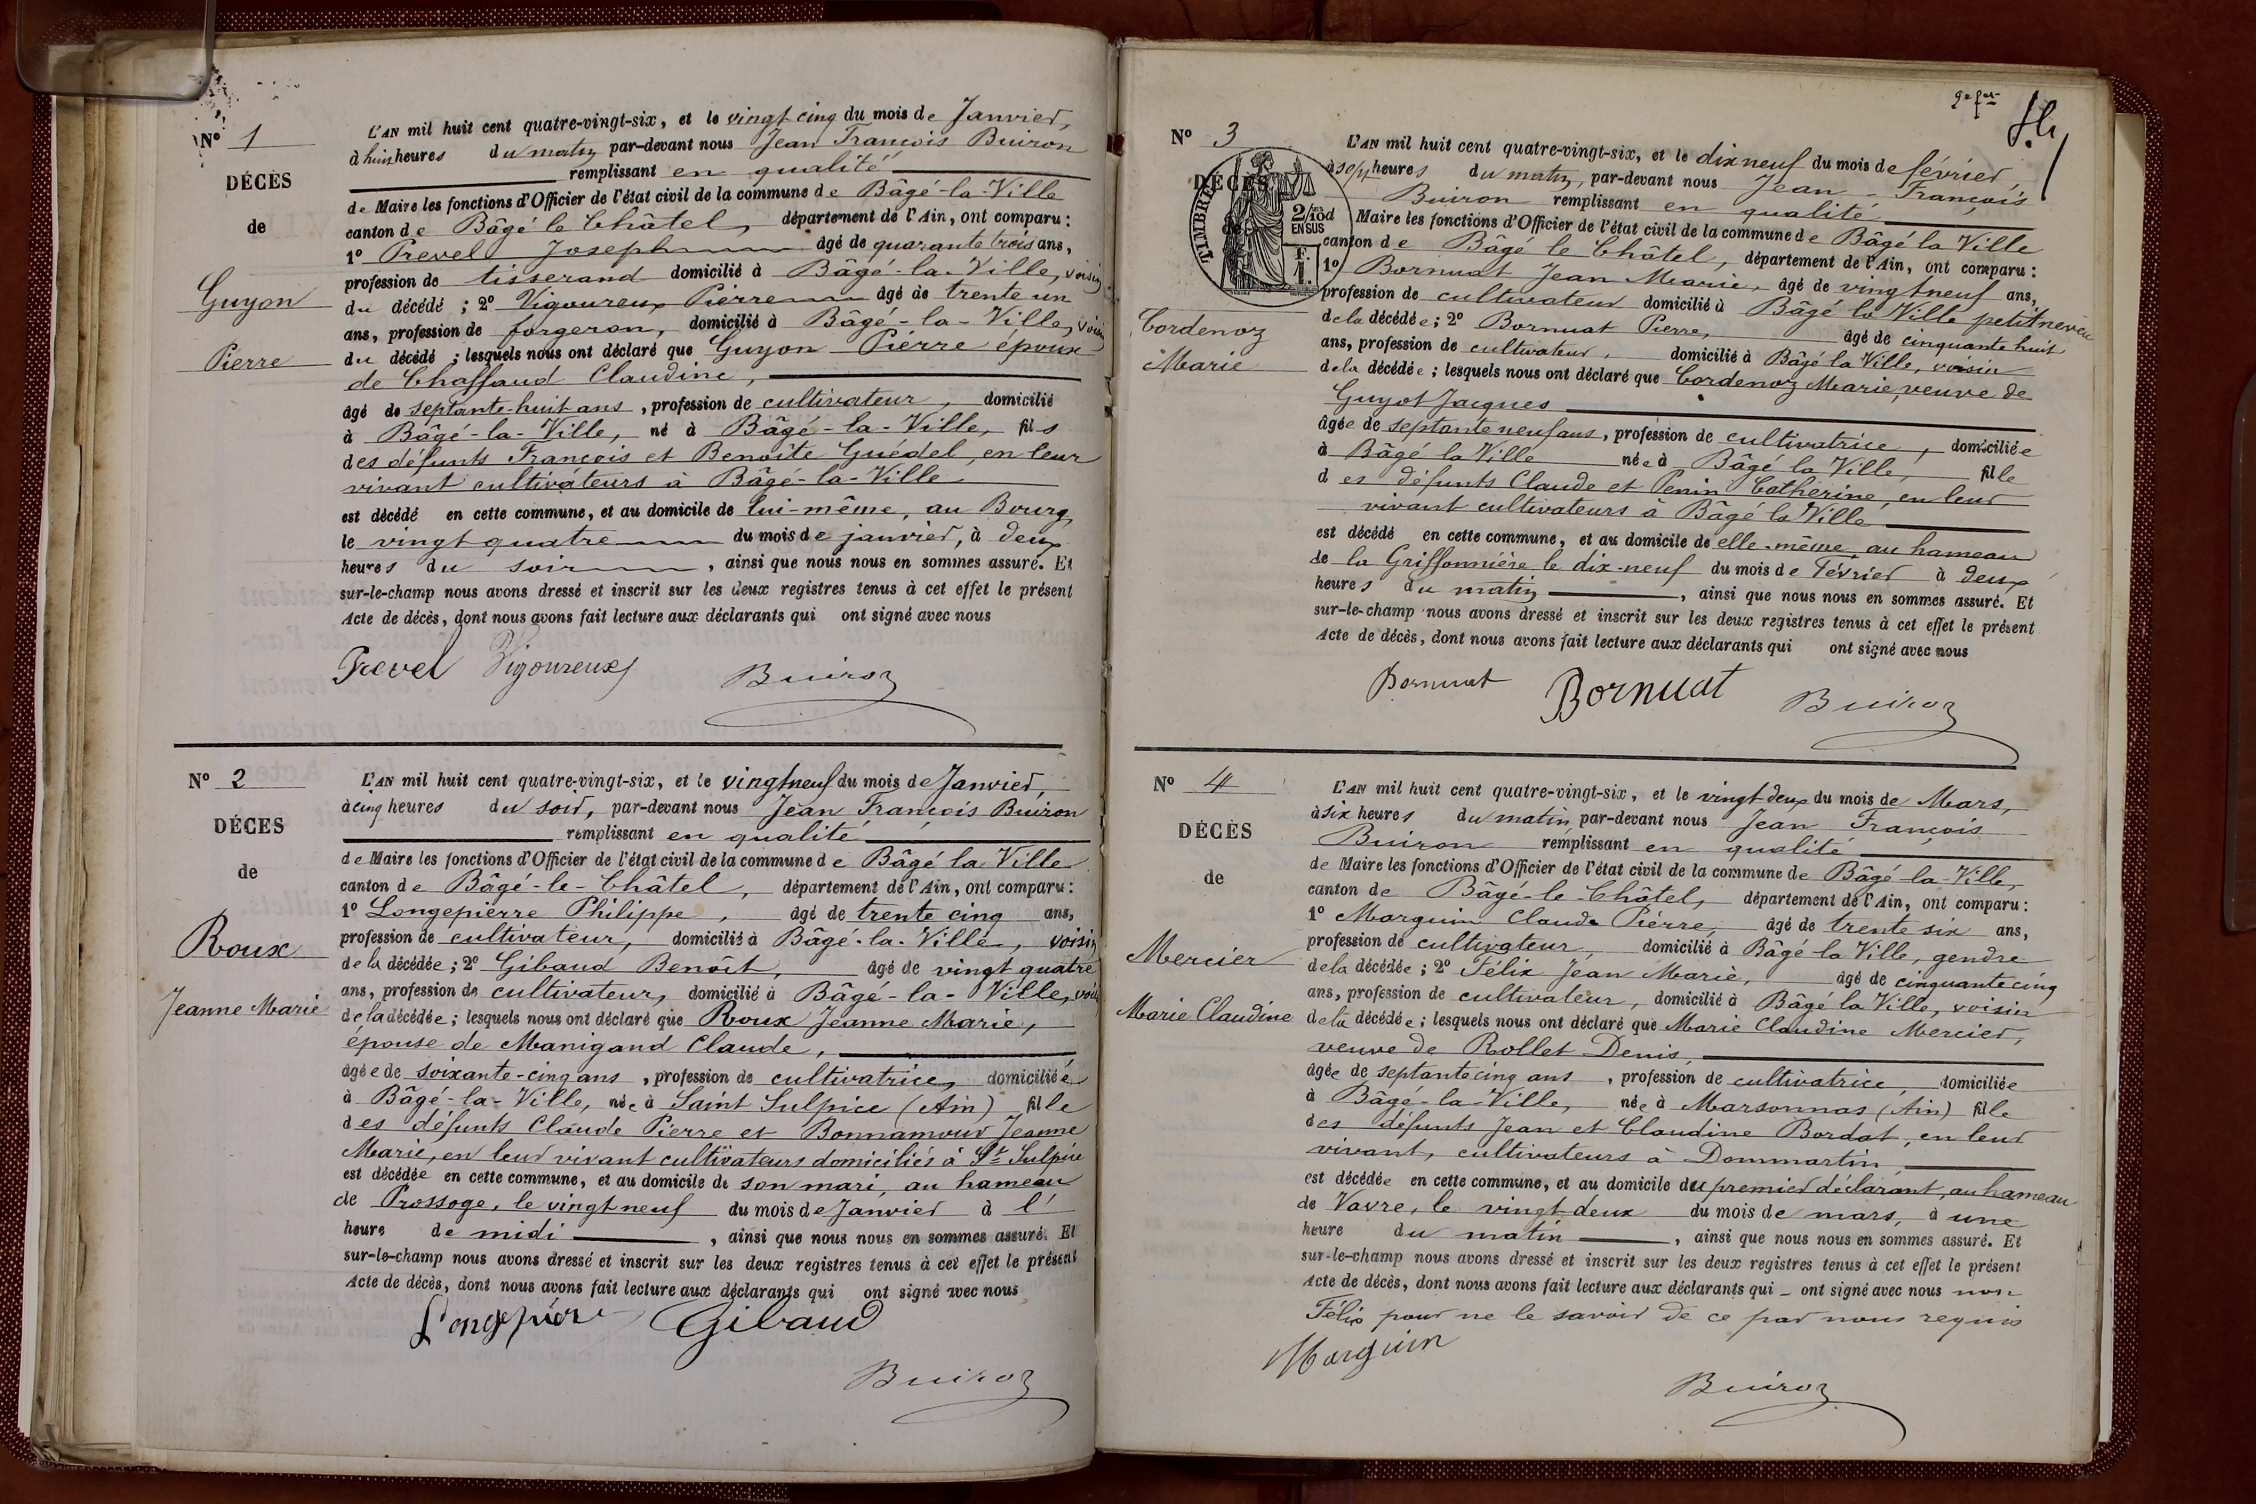 N° 1
DÉCÈS
de
Guyon
Pierre
L'AN mil huit cent quatre-vingt-six, et le vingt cinq du mois de Janvier,
à huit heures du matin par-devant nous Jean François Buiron
remplissant en qualité
de Maire les fonctions d'Officier de l'état civil de la commune de Bâgé-la-Ville
canton de Bâgé le Châtel, département de l'Ain, ont comparu :
1° Prevel Joseph âgé de quarante trois ans,
profession de tisserand domicilié à Bâgé-la-Ville, voisin
du décédé ; 2° Vigoureux Pierre âgé de trente un
ans, profession de forgeron, domicilié à Bâgé-la-Ville, voisin
du décédé ; lesquels nous ont déclaré que Guyon Pierre époux
de Chaffaud Claudine,
âgé de septante-huit ans, profession de cultivateur, domicilié
à Bâgé-la-Ville, né à Bâgé-la-Ville, fils
des défunts François et Benoîte Guédel, en leur
vivant cultivateurs à Bâgé-la-Ville
est décédé en cette commune, et au domicile de lui-même, au Bourg,
le vingt quatre du mois de janvier, à deux
heures du soir, ainsi que nous nous en sommes assuré. Et
sur-le-champ nous avons dressé et inscrit sur les deux registres tenus à cet effet le présent
Acte de décès, dont nous avons fait lecture aux déclarants qui ont signé avec nous
Prevel Vigoureux Buiron
N° 2
DÉCÈS
de
Roux
Jeanne Marie
L'AN mil huit cent quatre-vingt-six, et le vingt neuf du mois de Janvier,
à cinq heures du soir, par-devant nous Jean François Buiron
remplissant en qualité
de Maire les fonctions d'Officier de l'état civil de la commune de Bâgé la Ville
canton de Bâgé-le-Châtel, département de l'Ain, ont comparu :
1° Longepierre Philippe, âgé de trente cinq ans,
profession de cultivateur, domicilié à Bâgé-la-Ville, voisin
de la décédée ; 2° Gibaud Benoît, âgé de vingt quatre
ans, profession de cultivateur, domicilié à Bâgé-la-Ville, voisin
de la décédée ; lesquels nous ont déclaré que Roux Jeanne Marie,
épouse de Manigand Claude,
âgée de soixante-cinq ans, profession de cultivatrice, domiciliée
à Bâgé-la-Ville, née à Saint Sulpice (Ain) fille
des défunts Claude Pierre et Bonnamour Jeanne
Marie, en leur vivant cultivateurs domiciliés à St Sulpice
est décédée en cette commune, et au domicile de son mari, au hameau
de Prossoge, le vingt neuf du mois de Janvier à l'
heure de midi, ainsi que nous nous en sommes assuré. Et
sur-le-champ nous avons dressé et inscrit sur les deux registres tenus à cet effet le présent
Acte de décès, dont nous avons fait lecture aux déclarants qui ont signé avec nous
Longepierre Gibaud
Buiron
N° 3
DÉCÈS
de
TIMBRE
2/10 d
EN SUS
F.
1.
Cordenoz
Marie
L'AN mil huit cent quatre-vingt-six, et le dix neuf du mois de février,
à sept heures du matin, par-devant nous Jean François
Buiron remplissant en qualité
Maire les fonctions d'Officier de l'état civil de la commune de Bâgé la Ville
canton de Bâgé le Châtel, département de l'Ain, ont comparu :
1° Bornuat Jean Marie, âgé de vingt neuf ans,
profession de cultivateur domicilié à Bâgé la Ville petit neveu
de la décédée ; 2° Bornuat Pierre, âgé de cinquante huit
ans, profession de cultivateur, domicilié à Bâgé la Ville, voisin
de la décédée ; lesquels nous ont déclaré que Cordenoz Marie, veuve de
Guyot Jacques
âgée de septante neuf ans, profession de cultivatrice, domiciliée
à Bâgé la Ville née à Bâgé la Ville, fille
des défunts Claude et Penin Catherine, en leur
vivant cultivateurs à Bâgé la Ville
est décédé en cette commune, et au domicile de elle-même, au hameau
de la Griffonnière le dix-neuf du mois de Février à deux
heures du matin, ainsi que nous nous en sommes assuré. Et
sur-le-champ nous avons dressé et inscrit sur les deux registres tenus à cet effet le présent
Acte de décès, dont nous avons fait lecture aux déclarants qui ont signé avec nous
Bornuat Bornuat Buiron
N° 4
DÉCÈS
de
Mercier
Marie Claudine
L'AN mil huit cent quatre-vingt-six, et le vingt deux du mois de Mars,
à six heures du matin par-devant nous Jean François
Buiron remplissant en qualité
de Maire les fonctions d'Officier de l'état civil de la commune de Bâgé-la-Ville,
canton de Bâgé-le-Châtel, département de l'Ain, ont comparu :
1° Marguin Claude Pierre, âgé de trente six ans,
profession de cultivateur, domicilié à Bâgé la Ville, gendre
de la décédée ; 2° Félix Jean Marie, âgé de cinquante cinq
ans, profession de cultivateur, domicilié à Bâgé la Ville, voisin
de la décédée ; lesquels nous ont déclaré que Marie Claudine Mercier,
veuve de Rollet Denis,
âgée de septante cinq ans, profession de cultivatrice, domiciliée
à Bâgé-la-Ville, née à Marsonnas (Ain) fille
des défunts Jean et Claudine Bordat, en leur
vivant, cultivateurs à Dommartin,
est décédée en cette commune, et au domicile du premier déclarant, au hameau
de Vavre, le vingt deux du mois de mars, à une
heure du matin, ainsi que nous nous en sommes assuré. Et
sur-le-champ nous avons dressé et inscrit sur les deux registres tenus à cet effet le présent
Acte de décès, dont nous avons fait lecture aux déclarants qui ont signé avec nous non
Félix pour ne le savoir de ce par nous requis
Marguin
Buiron